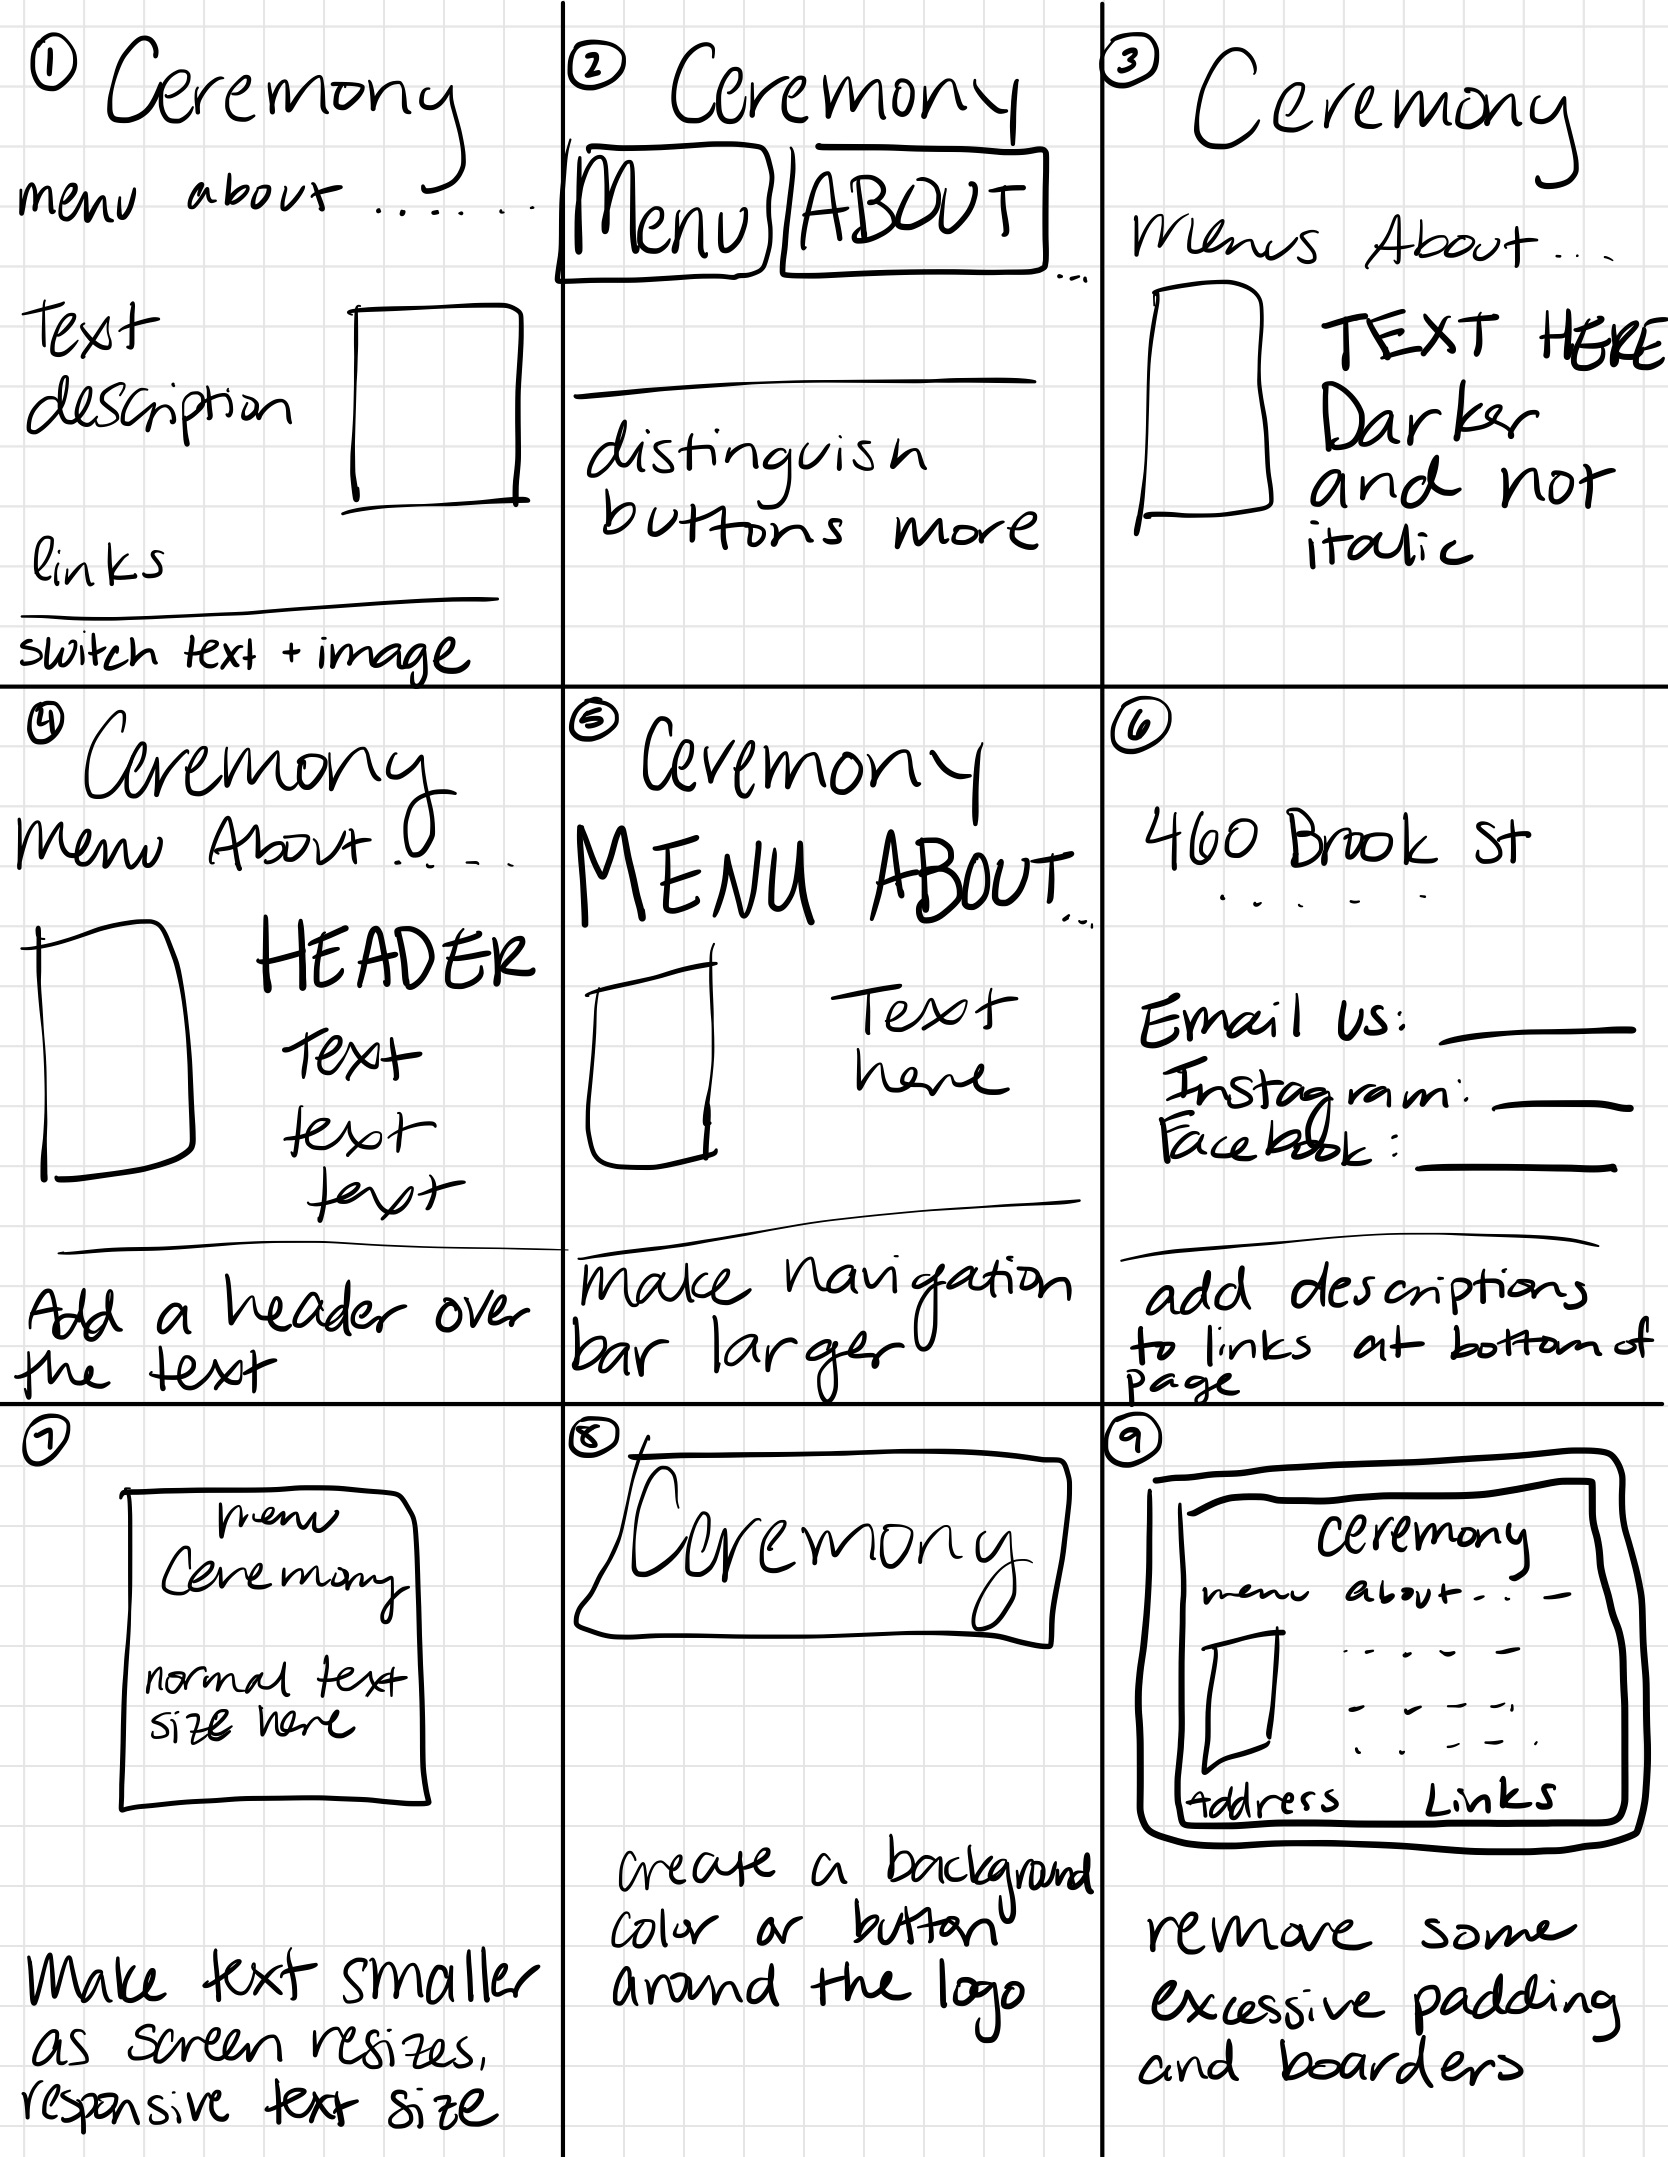 1
Ceremony
menu about ......
Text
description
links
switch text + image
2
Ceremony
Menu ABOUT ...
distinguish
buttons more
3
Ceremony
Menus About ...
TEXT HERE
Darker
and not
italic
4
Ceremony
Menu About .....
HEADER
Text
text
text
Add a header over
the text
5
Ceremony
MENU ABOUT...
Text
here
make navigation
bar larger
6
460 Brook St
.....
Email us:
Instagram:
Facebook:
add descriptions
to links at bottom of
page
7
menu
Ceremony
normal text
size here
Make text smaller
as screen resizes,
responsive text size
8
Ceremony
create a background
color or button
around the logo
9
ceremony
menu about ...
Address Links
remove some
excessive padding
and boarders